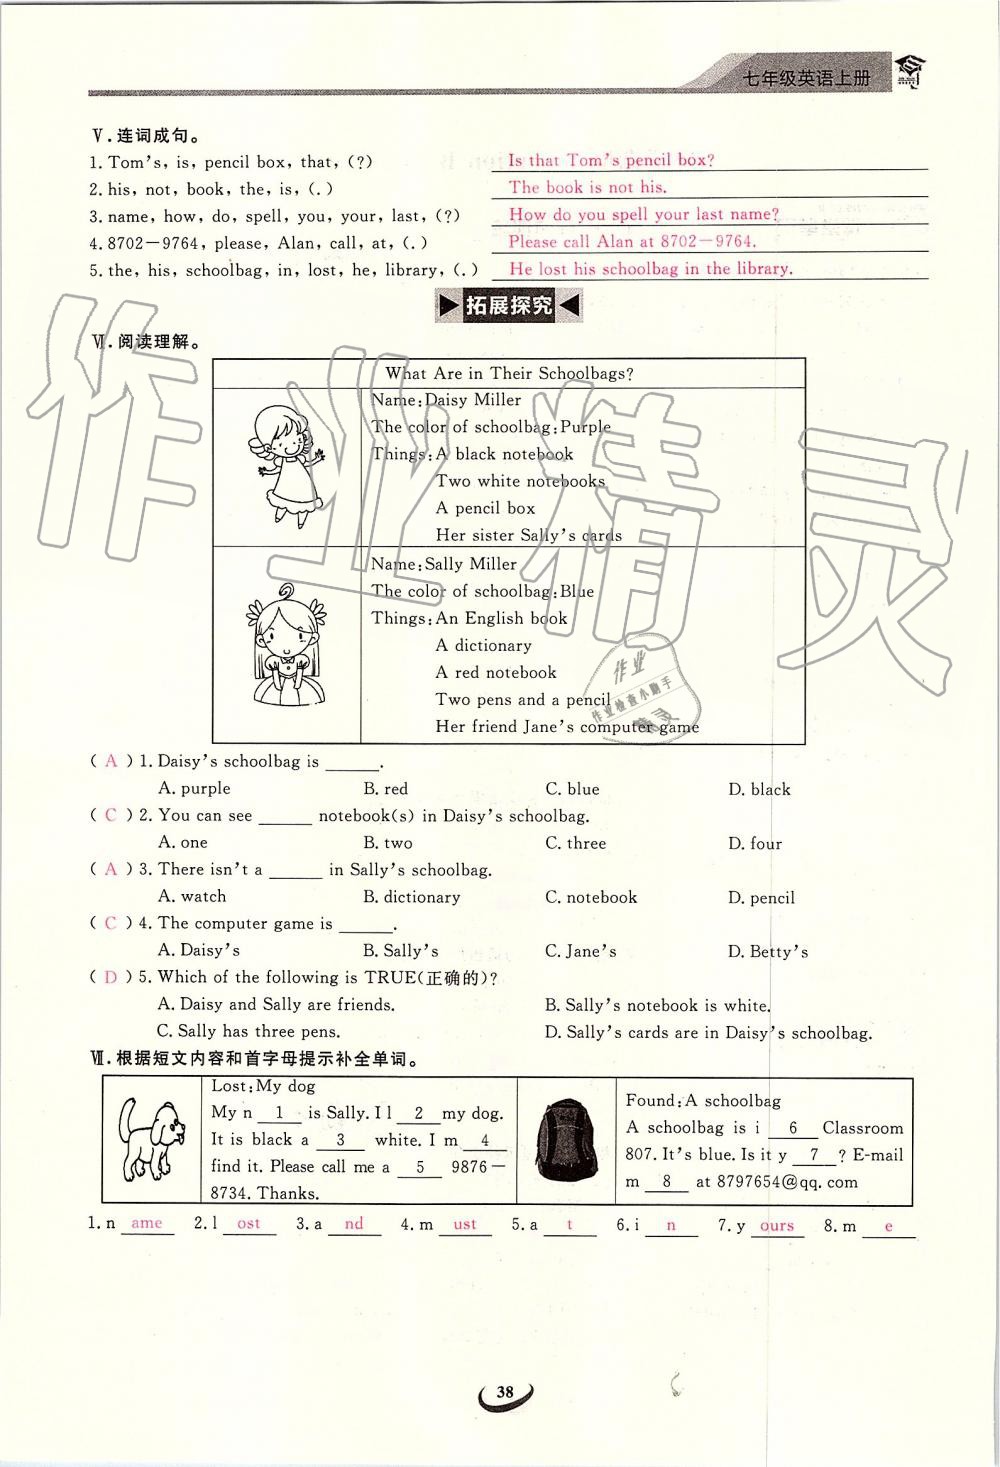 七年级英语上册
Ⅴ.连词成句。
1. Tom's, is, pencil box, that, (?) Is that Tom's pencil box?
2. his, not, book, the, is, (.) The book is not his.
3. name, how, do, spell, you, your, last, (?) How do you spell your last name?
4. 8702－9764, please, Alan, call, at, (.) Please call Alan at 8702－9764.
5. the, his, schoolbag, in, lost, he, library, (.) He lost his schoolbag in the library.
拓展探究
Ⅵ.阅读理解。
What Are in Their Schoolbags?
Name: Daisy Miller
The color of schoolbag: Purple
Things: A black notebook
Two white notebooks
A pencil box
Her sister Sally's cards
Name: Sally Miller
The color of schoolbag: Blue
Things: An English book
A dictionary
A red notebook
Two pens and a pencil
Her friend Jane's computer game
( A ) 1. Daisy's schoolbag is ______.
A. purple B. red C. blue D. black
( C ) 2. You can see ______ notebook(s) in Daisy's schoolbag.
A. one B. two C. three D. four
( A ) 3. There isn't a ______ in Sally's schoolbag.
A. watch B. dictionary C. notebook D. pencil
( C ) 4. The computer game is ______.
A. Daisy's B. Sally's C. Jane's D. Betty's
( D ) 5. Which of the following is TRUE(正确的)?
A. Daisy and Sally are friends. B. Sally's notebook is white.
C. Sally has three pens. D. Sally's cards are in Daisy's schoolbag.
Ⅶ.根据短文内容和首字母提示补全单词。
Lost: My dog
My n 1 is Sally. I l 2 my dog.
It is black a 3 white. I m 4
find it. Please call me a 5 9876－
8734. Thanks.
Found: A schoolbag
A schoolbag is i 6 Classroom
807. It's blue. Is it y 7 ? E-mail
m 8 at 8797654@qq.com
1. n ame 2. l ost 3. a nd 4. m ust 5. a t 6. i n 7. y ours 8. m e
38
作业精灵
作业
作业检查小助手
精灵